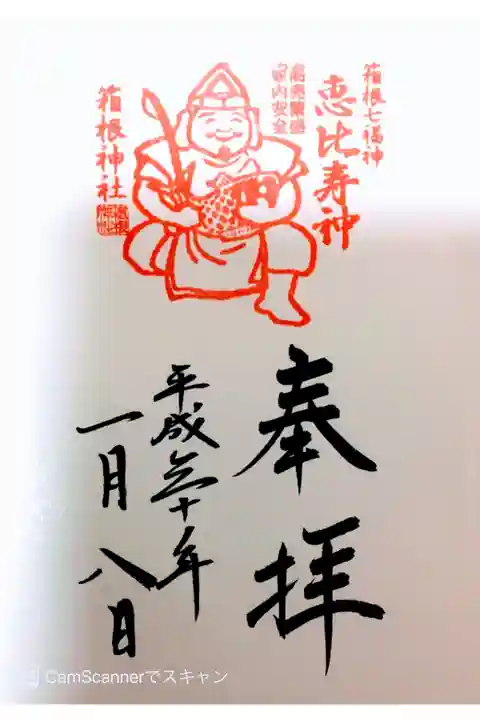 箱根七福神
恵比寿神
商売繁盛
家内安全
箱根神社
奉拝
平成三十年
一月八日
CamScannerでスキャン